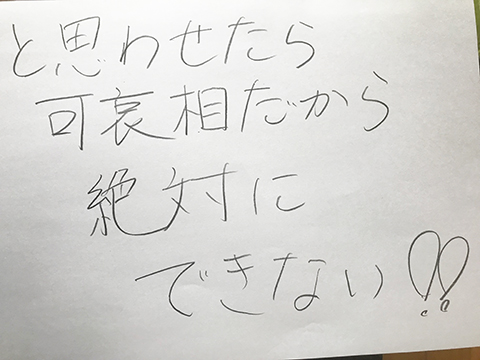 と思わせたら
可哀相だから
絶対に
できない!!